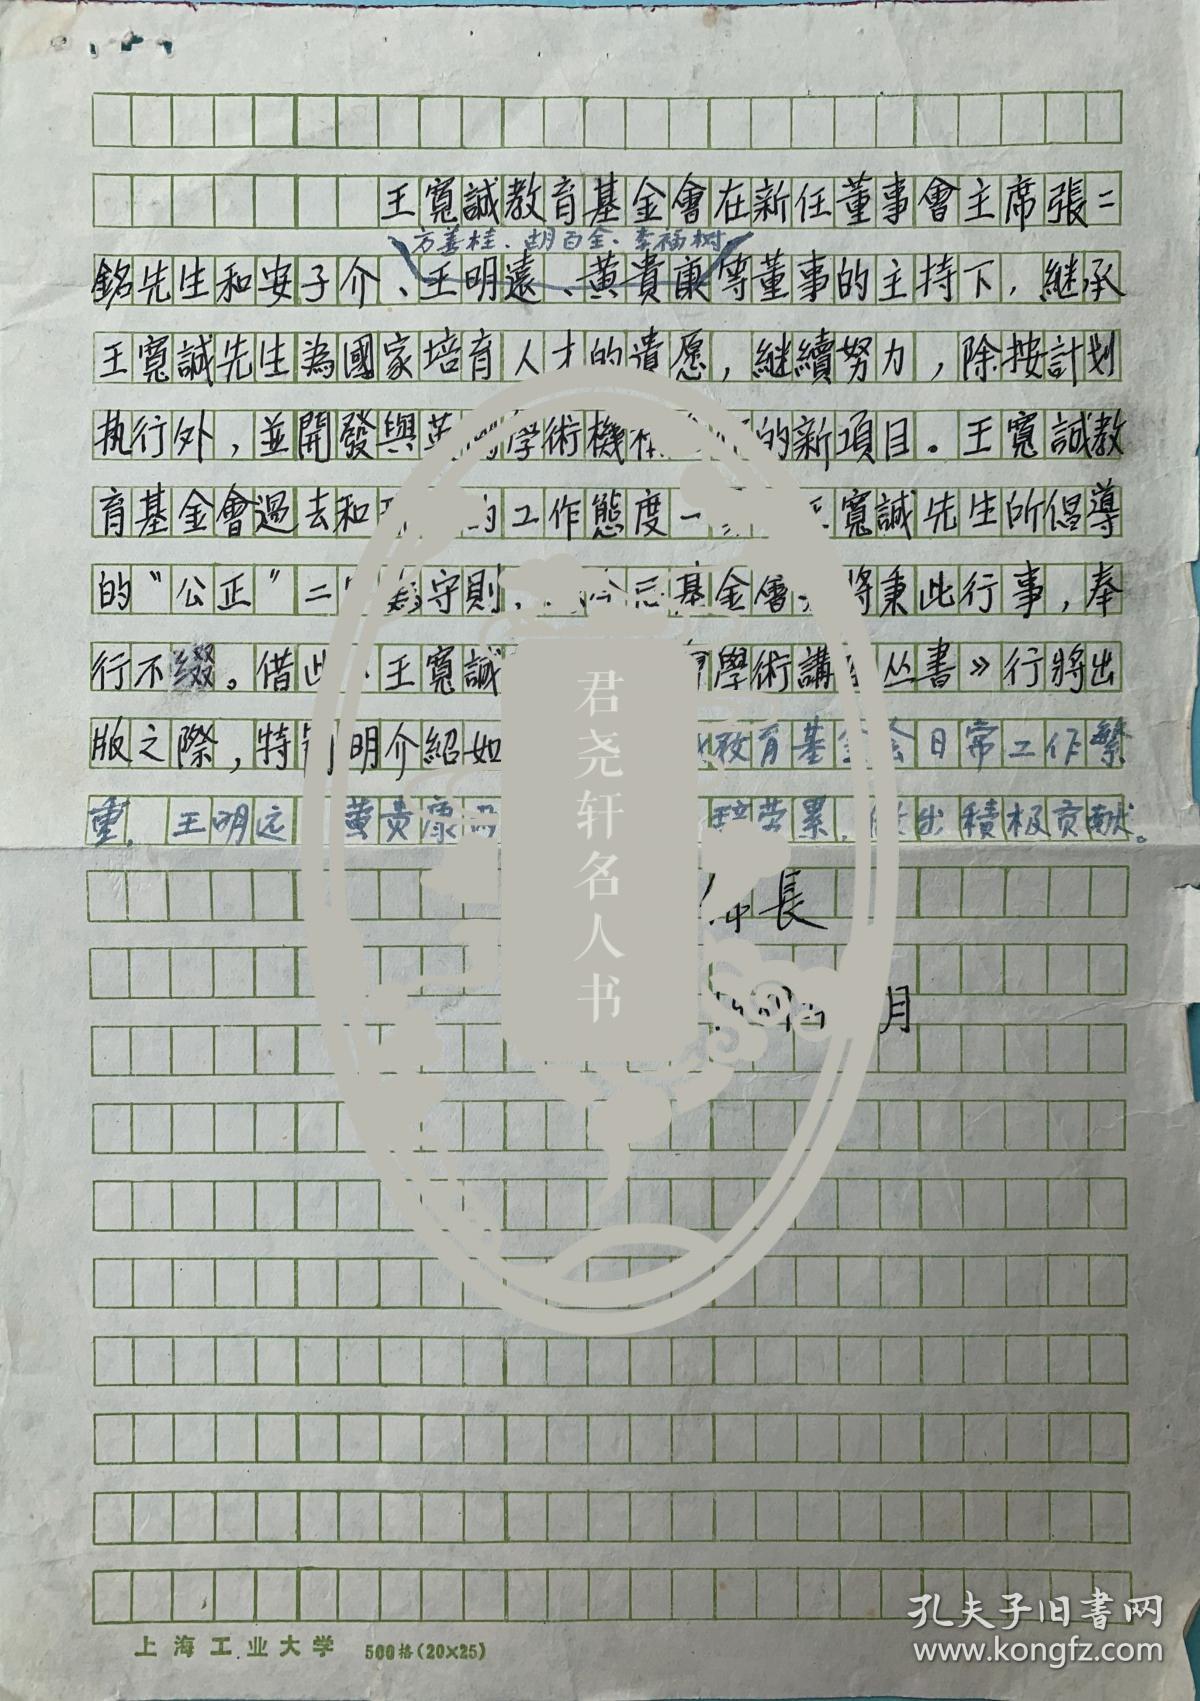 王寬誠教育基金會在新任董事會主席張二
方善桂、胡百全、李福树
銘先生和安子介、王明遠、黄貴康等董事的主持下，継承
王寬誠先生為國家培育人才的遺愿，継續努力，除按計划
执行外，並開發與英 學術機 的新項目。王寬誠教
育基金會過去和 的工作態度一 寬誠先生所倡導
的“公正”二 守則， 基金會 將秉此行事，奉
行不綴。借此 王寬誠 學術講 丛書》行將出
版之際，特 明介紹如 教育基金会日常工作繁
重，王明远 黄貴康 劳累， 出積极贡献。
長
月
君尧轩名人书
上海工业大学 500格(20×25)
孔夫子旧書网
www.kongfz.com